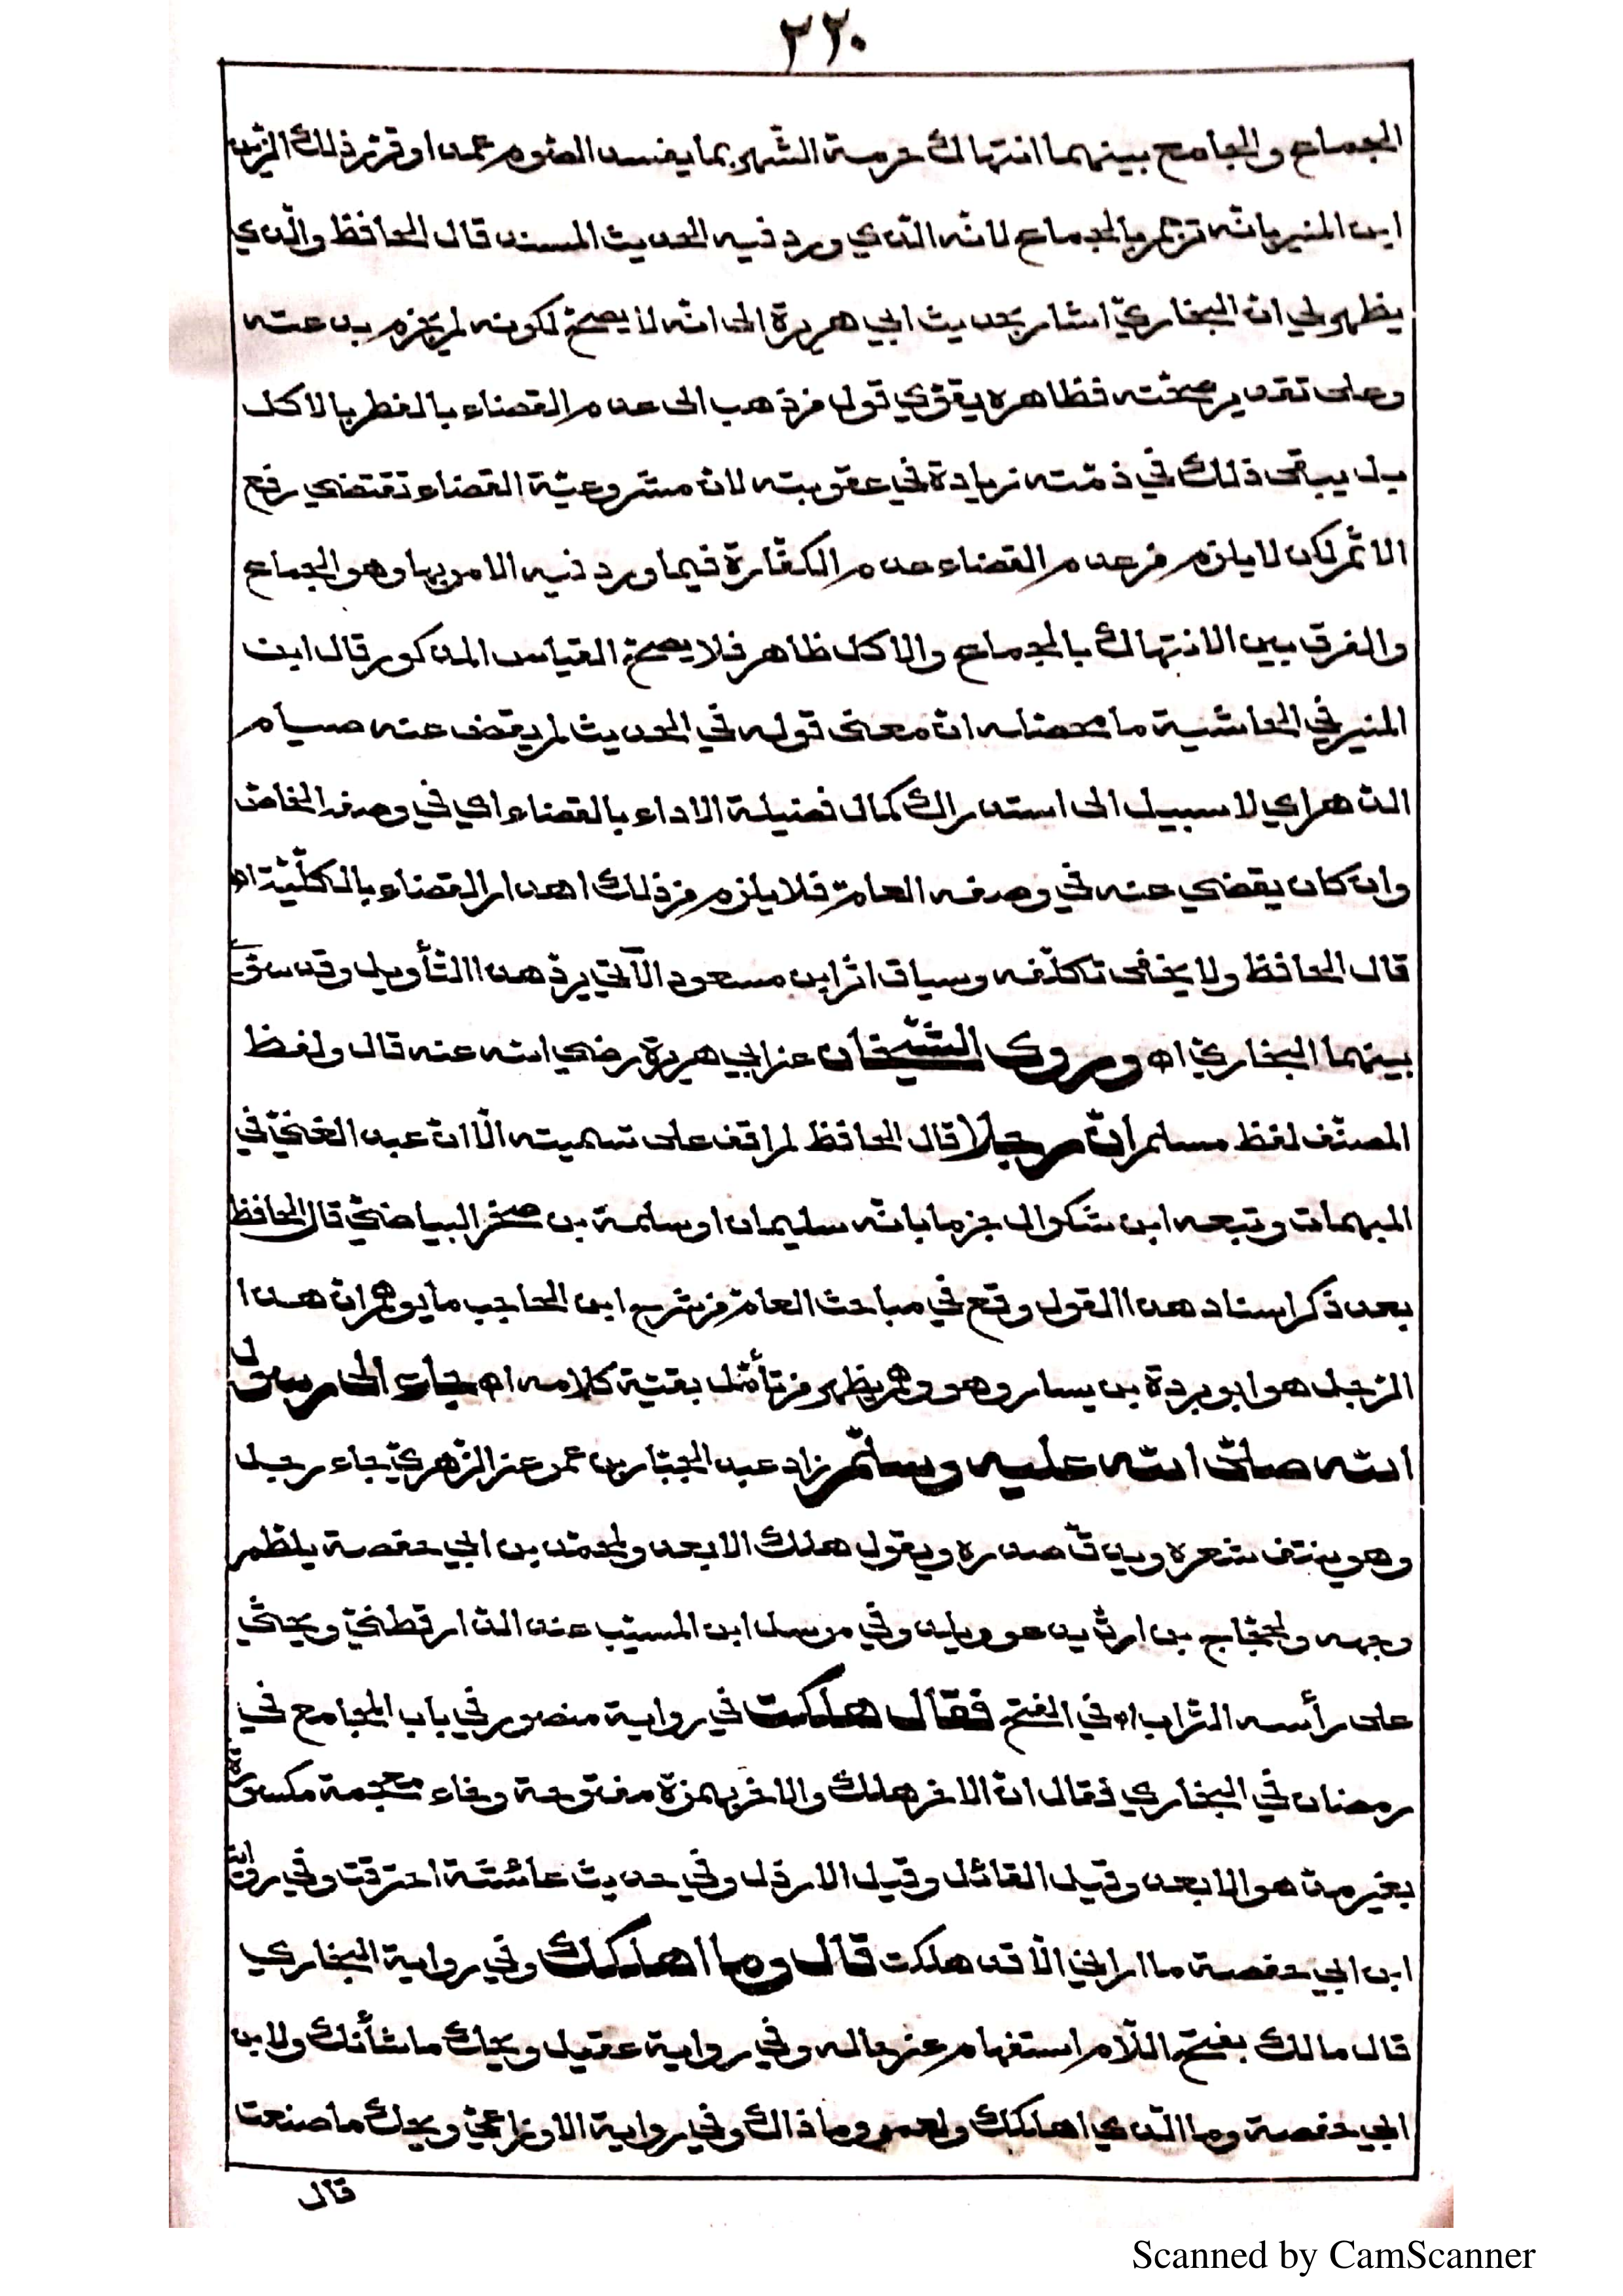 ٣٢٠
الجماع والجامع بينهما انتهاك حرمة الشهر بما يفسد الصّوم عمدا وقرّر ذلك الزّين
ابن المنير بانّه ترجم بالجماع لانّه الّذي ورد فيه الحديث المسند قال الحافظ والّذي
يظهر لي انّ البخاريّ اشار بحديث ابي هريرة الى انّه لا يصحّ لكونه لم يجزم به عنه
وعلى تقدير صحّته فظاهره يقوّي قول من ذهب الى عدم القضاء بالفطر بالاكل
بل يبقى ذلك في ذمّته زيادة في عقوبته لانّ مشروعيّة القضاء تقتضي رفع
الاثم لكن لا يلزم من عدم القضاء عدم الكفّارة فيما ورد فيه الامر بها وهو الجماع
والفرق بين الانتهاك بالجماع والاكل ظاهر فلا يصحّ القياس المذكور قال ابن
المنير في الحاشية ما محصّله انّ معنى قوله في الحديث لم يقض عنه صيام
الدّهر اي لا سبيل الى استدراك كمال فضيلة الاداء بالقضاء اي في وصفه الخاصّ
وان كان يقضي عنه في وصفه العامّ فلا يلزم من ذلك اهدار القضاء بالكلّيّة اه
قال الحافظ ولا يخفى تكلّفه وسياق اثر ابن مسعود الآتي يردّ هذا التّأويل وقد سوّى
بينهما البخاريّ اه وروى الشّيخان عن ابي هريرة رضي الله عنه قال ولفظ
المصنّف لفظ مسلم انّ رجلا قال الحافظ لم اقف على تسميته الّا انّ عبد الغنيّ في
المبهمات وتبعه ابن بشكوال جزما بانّه سليمان او سلمة بن صخر البياضيّ قال الحافظ
بعد ذكر اسناد هذا القول وقع في مباحث العامّ من شرح ابن الحاجب ما يوهم انّ هذا
الرّجل هو ابو بردة بن يسار وهو وهم يظهر من تأمّل بقيّة كلامه اه جاء الى رسول
الله صلّى الله عليه وسلّم زاد عبد الجبّار بن عمر عن الزّهريّ جاء رجل
وهو ينتف شعره ويدقّ صدره ويقول هلك الابعد ولمحمّد بن ابي حفصة يلطم
وجهه ولحجّاج بن ارطاة يدعو ويله وفي مرسل ابن المسيّب عند الدّارقطنيّ ويحثي
على رأسه التّراب اه في الفتح فقال هلكت في رواية منصور في باب المجامع في
رمضان في البخاري فقال انّ الاخر هلك والاخر بهمزة مفتوحة وخاء معجمة مكسورة
بغير مدّ هو الابعد وقيل الغائل وقيل الارذل وفي حديث عائشة احترقت وفي رواية
ابن ابي حفصة ما اراني الّا قد هلكت قال وما اهلكك وفي رواية البخاري
قال مالك بفتح اللّام استفهام عن حاله وفي رواية عقيل ويحك ما شأنك ولابن
ابي حفصة وما الّذي اهلكك ولعمرو ما ذاك وفي رواية الاوزاعيّ ويحك ما صنعت
قال
Scanned by CamScanner